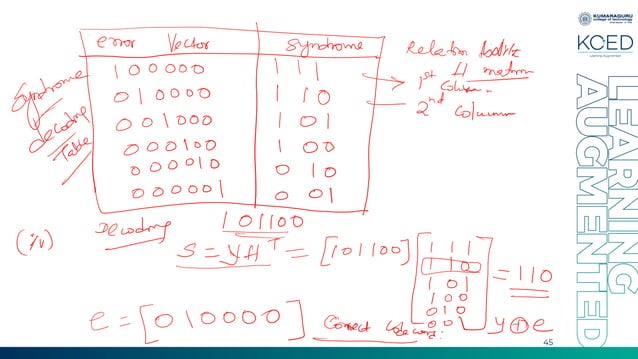 KUMARAGURU
college of technology
KCED
Learning Augmented
LEARNING
AUGMENTED
Syndrome
decoding
Table
error Vector syndrome
100000 111
010000 110
001000 101
000100 100
000010 010
000001 001
Relation
H matrix
1st column
2nd column
(iv) Decoding 101100
S = yHᵀ = [101100]
111
110
101
100
010
001
= 110
e = [010000] Correct codeword:
y ⊕ e
45